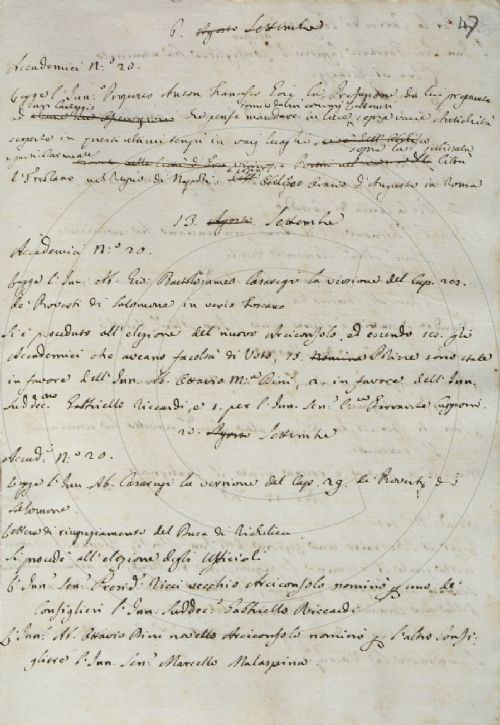 47
6. Agosto Settembre
Accademici N.° 20.
Legge l'Inn. Proposto Anton Francesco Gori la Prefazione da lui preparata
ed che pensa mandare in luce, sopra varie Antichità
scoperte in questi ultimi tempi in varj luoghi,
e particolarmente Città
l'Ercolano nel Regno di Napoli, e dell'Obelisco d'Augusto in Roma
13. Agosto Settembre
Accademici N.° 20.
Legge l'Inn. Ab. Gio. Bartolommeo Casaregi la versione del Cap. 28.
de' Proverbi di Salomone in verso Toscano
Si è proceduto all'elezione del nuovo Arciconsolo, ed essendo 18. gli
Accademici che aveano facoltà di Voto, 15. Nomine Polizze sono state
in favore dell'Inn. Ab. Ottavio M.a Bini, 2. in favore dell'Inn.
Suddec.no Gabbriello Riccardi, e 1. per l'Inn. Sen.r Ferrante Capponi.
20. Agosto Settembre
Accad.i N.° 20.
Legge l'Inn. Ab. Casaregi la versione del Cap. 29. de' Proverbj di
Salomone.
Lettera di ringraziamento del Duca di Richelieu.
Si procedé all'elezione degli Uffiziali
L'Inn. Sen.r Presid.e Ricci vecchio Arciconsolo nominò per uno de'
Consiglieri l'Inn. Suddec.o Gabbriello Riccardi
L'Inn. Ab. Ottavio Bini novello Arciconsolo nominò per l'altro Consi-
gliere l'Inn. Sen.r Marcello Malaspina